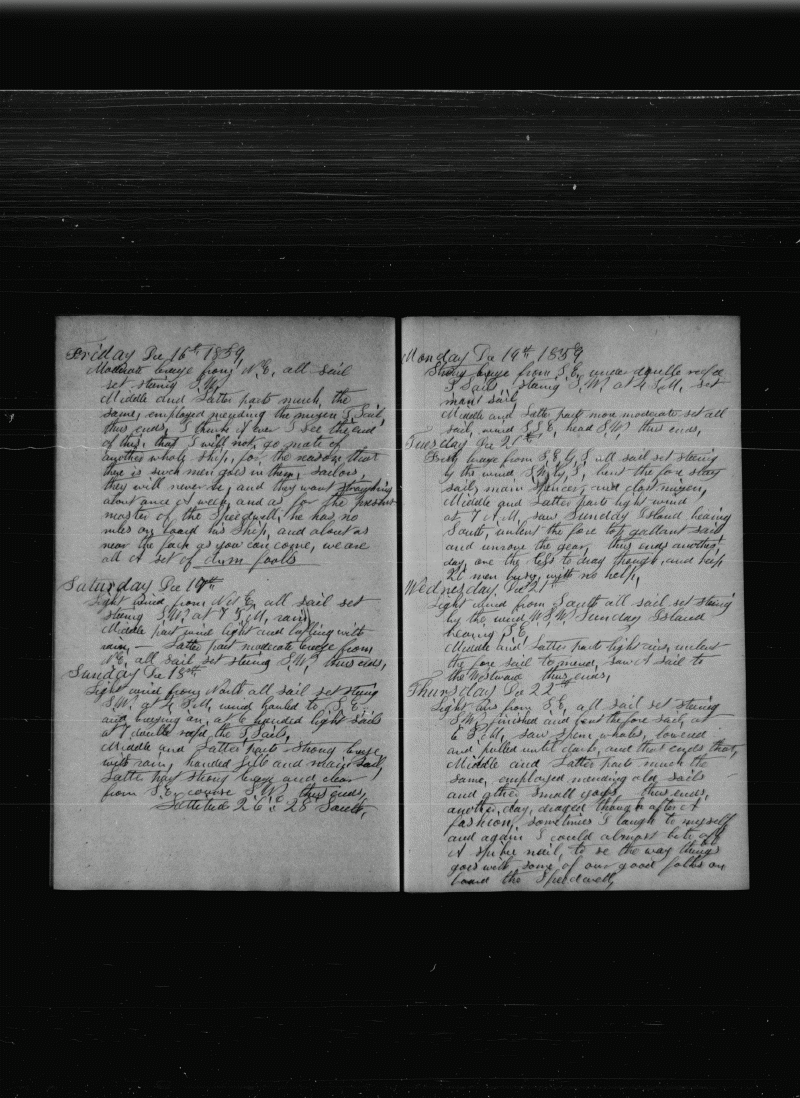 Friday Dec 16th 1859,
Moderate breeze from N.E, all sail
set stering S.W,
Middle and Latter parts much the
same, employed mending the mizen T. Sail,
thus ends, I think if ever I see the end
of this, that I will not go mate of
another whole ship, for the reason that
there is such men goes in them, sailors,
they will never be, and they want strapping
about once A week, and as for the present
master of the Speedwell, he has no
rules on board his ship, and about as
near the fack as you can come, we are
all A set of dum fools
Saturday Dec 17th
Light wind from N.E, all sail set
stering S.W, at 7 P.M, rain
Middle part wind light and baffling with
rain, Latter part moderate breeze from
N.E, all sail set stering S.W, thus ends,
Sunday Dec 18th
Light wind from North all sail set stering
S.W, at 4 P.M, wind hauled to S.E
and breezing on, at 6 handed light sails
at 7 double reefd the T. Sails,
Middle and Latter parts strong breeze
with rain, handed jib and main sail,
Latter part strong breeze and clear
from S.E, course S.W, thus ends,
Lattitude 26 : 28 South,
Monday Dec 19th 1859
Strong breeze from S.E, under double reefd
T. Sails, stering S.W, at 4 P.M, set
main sail,
Middle and Latter parts more moderate set all
sail, wind S.S.E, head S.W, thus ends,
Tuesday Dec 20th
Brisk breeze from S.E, all sail set stering
by the wind, bent the fore stay
sail, main spencer, and close mizen,
Middle and Latter parts light wind
at 7 A.M, saw Sunday Island bearing
South, unbent the fore top gallant sail
and unrove the gear, thus ends another
day, one the less to drag though, and keep
21 men busy, with no help,
Wednesday, Dec 21st
Light wind from South all sail set stering
by the wind W.S.W, Sunday Island
bearing S.E,
Middle and Latter part light airs, unbent
the fore sail to mend, saw A sail to
the Westward thus ends,
Thursday Dec 22nd
Light airs from S.E, all sail set stering
S.W, finished and bent the fore sail, at
6 P.M, saw sperm whales, lowered
and pulled until dark, and that ends that,
Middle and Latter parts much the
same, employed mending old sails
and other small jobs thus ends,
another day, draged though after A
fashion, sometimes I laugh to myself
and again I could almost bite off
A spike nail, to se the way things
goes with some of our good folks on
board the Speedwell,